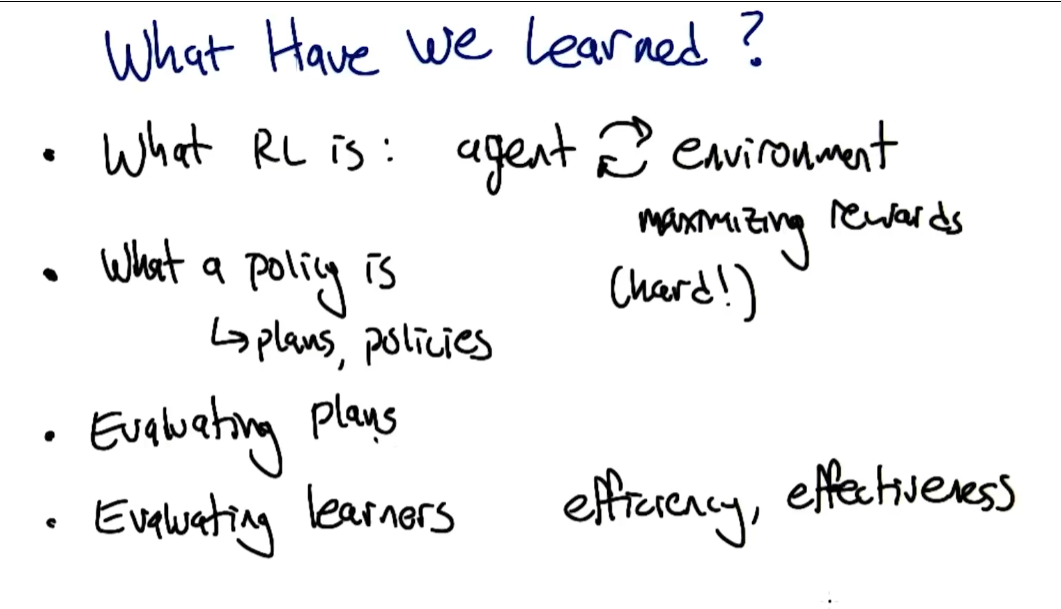 What Have We Learned?
• What RL is: agent ⇄ environment
maximizing rewards
• What a policy is
(hard!)
↳ plans, policies
• Evaluating plans
• Evaluating learners efficiency, effectiveness